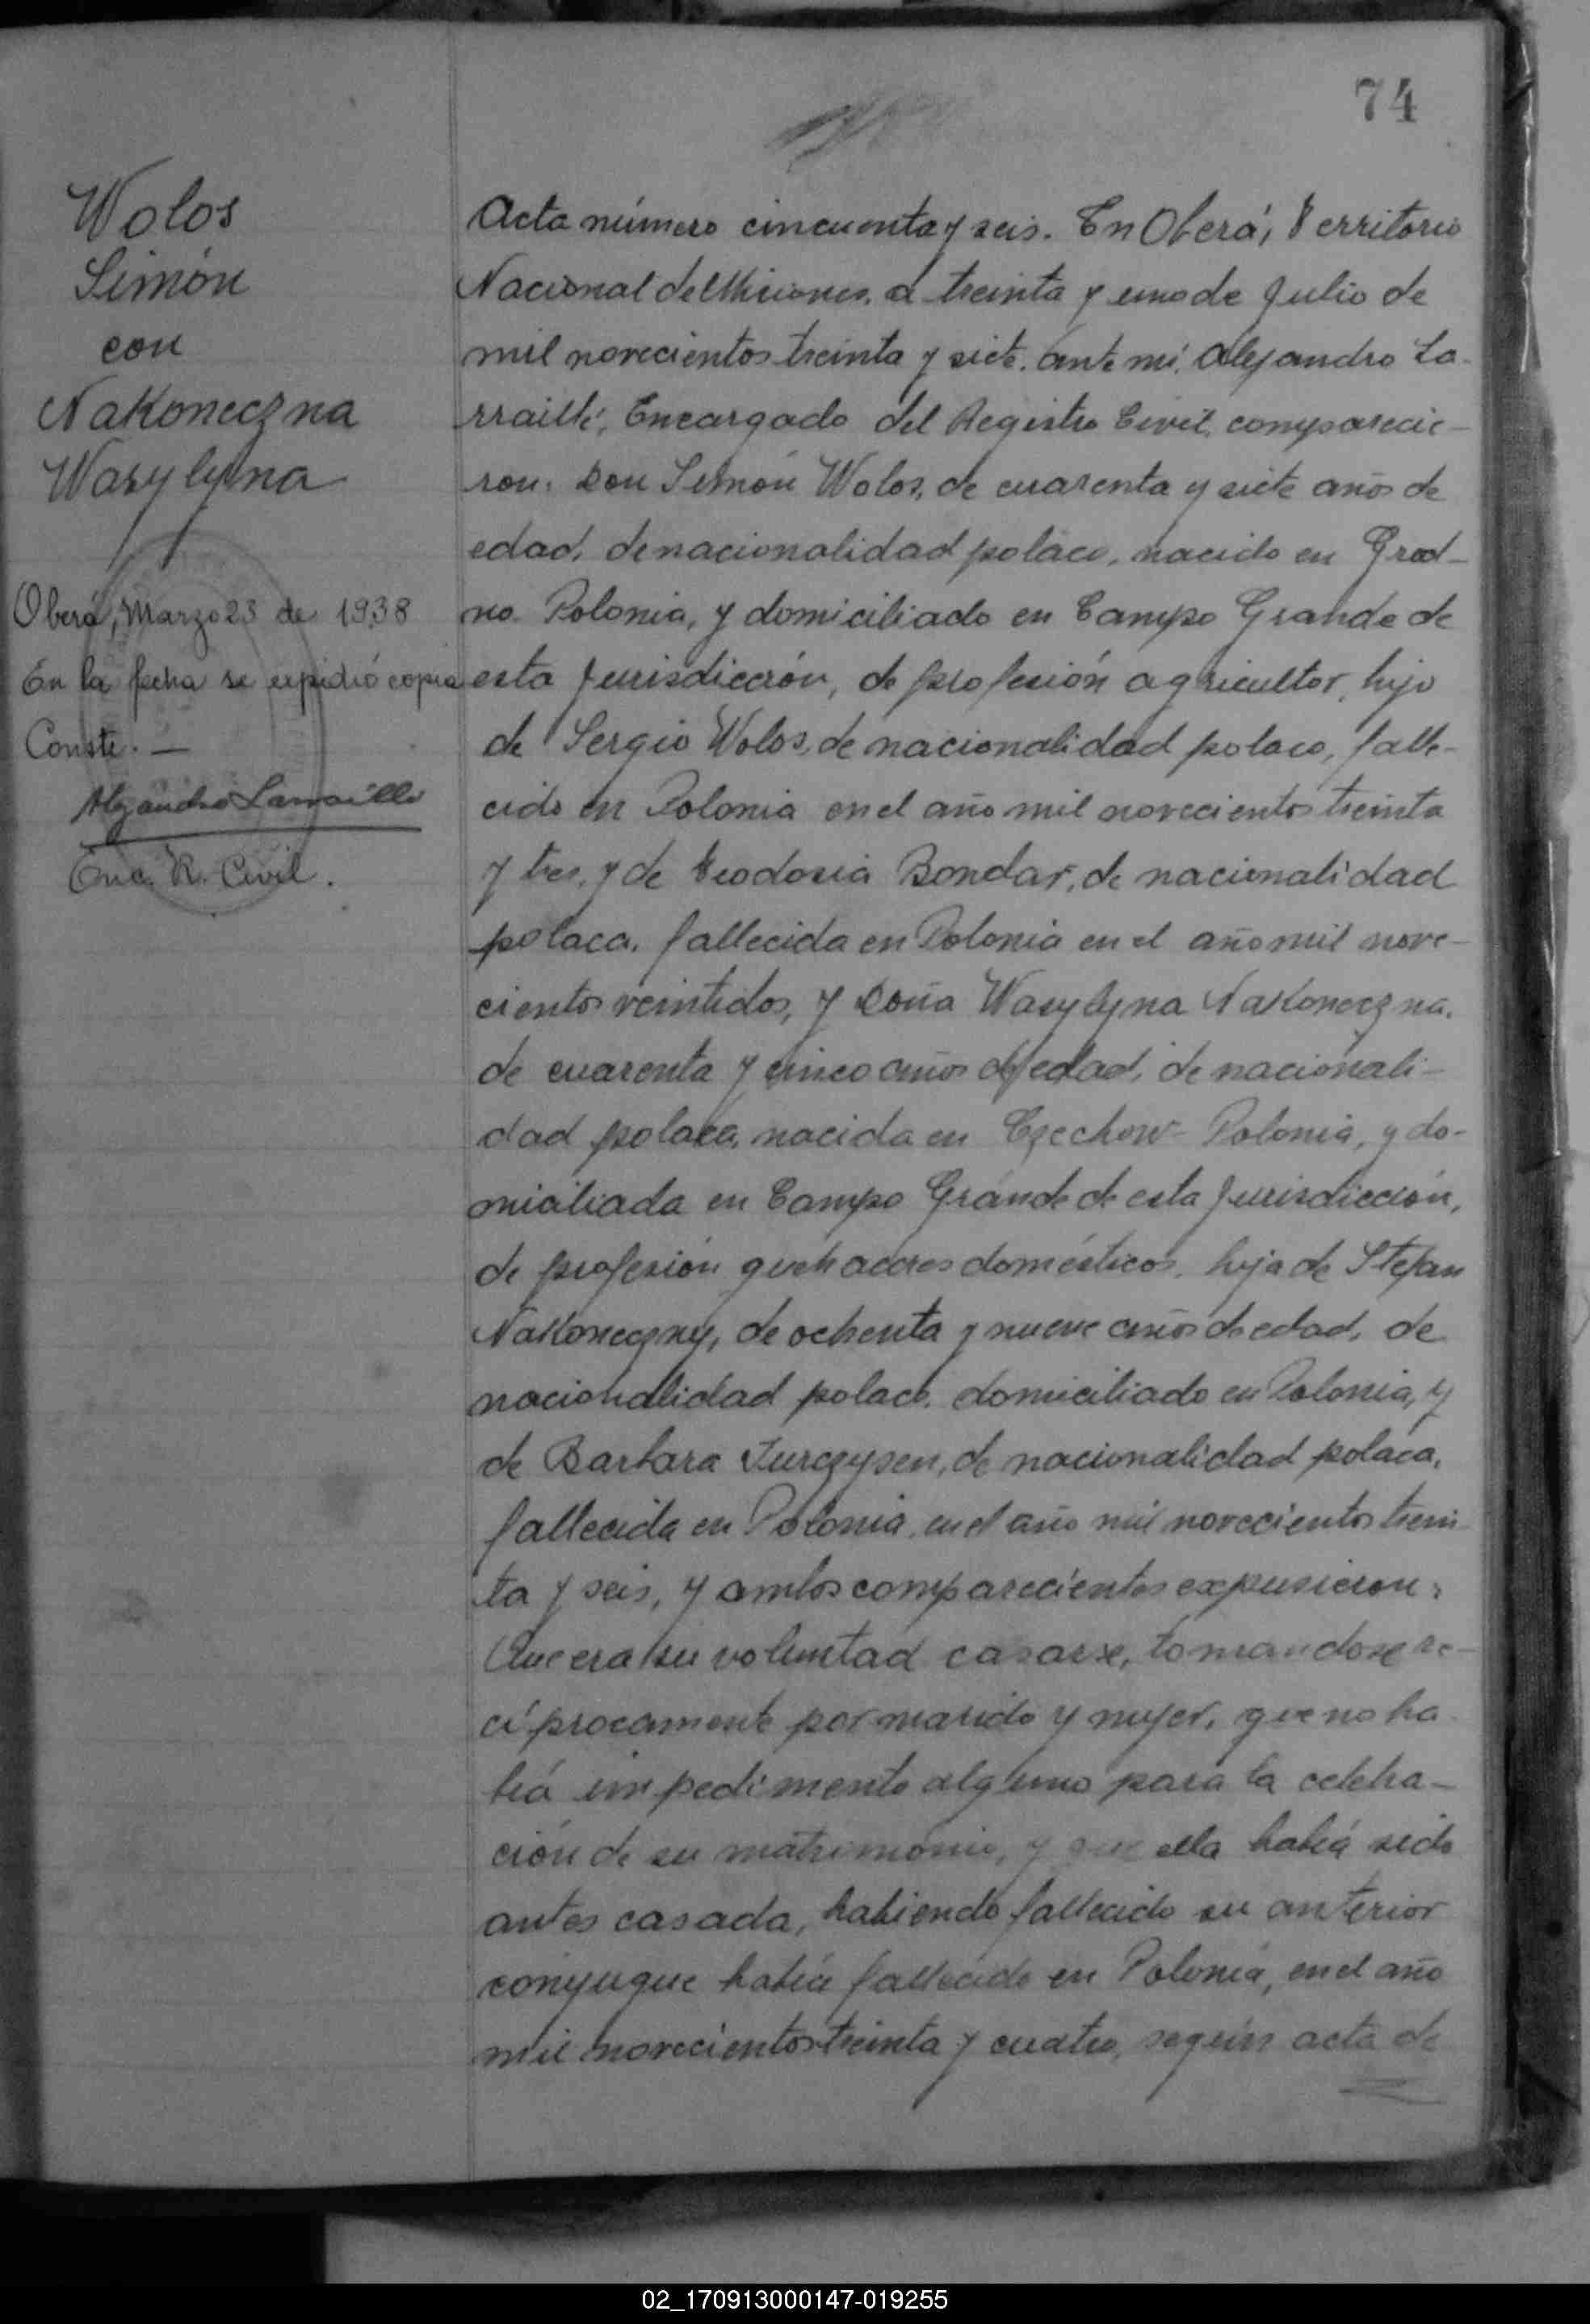 74
Wolos
Simón
con
Nakoneczna
Wasylyna
Oberá, Marzo 23 de 1938
En la fecha se expidió copia
Conste. —
Alejandro Larraillé
Enc. R. Civil.
Acta número cincuenta y seis. En Oberá, Territorio
Nacional de Misiones, a treinta y uno de Julio de
mil novecientos treinta y siete, ante mí, Alejandro La-
rraillé, Encargado del Registro Civil, comparecie-
ron: Don Simón Wolos, de cuarenta y siete años de
edad, de nacionalidad polaco, nacido en Grod-
no - Polonia, y domiciliado en Campo Grande de
esta Jurisdicción, de profesión agricultor, hijo
de Sergio Wolos, de nacionalidad polaco, falle-
cido en Polonia en el año mil novecientos treinta
y tres, y de Teodosia Bondar, de nacionalidad
polaca, fallecida en Polonia en el año mil nove-
cientos veintidos, y Doña Wasylyna Nakoneczna,
de cuarenta y cinco años de edad, de nacionali-
dad polaca, nacida en Czechow - Polonia, y do-
miciliada en Campo Grande de esta Jurisdicción,
de profesión quehaceres domésticos, hija de Stefan
Nakoneczny, de ochenta y nueve años de edad, de
nacionalidad polaco, domiciliado en Polonia, y
de Barbara Jurczysen, de nacionalidad polaca,
fallecida en Polonia, en el año mil novecientos trein-
ta y seis, y ambos comparecientes expusieron:
Que era su voluntad casarse, tomandose re-
cíprocamente por marido y mujer, que no ha-
bía impedimento alguno para la celebra-
ción de su matrimonio, y que ella había sido
antes casada, habiendo fallecido su anterior
conyugue había fallecido en Polonia, en el año
mil novecientos treinta y cuatro, según acta de
02_170913000147-019255